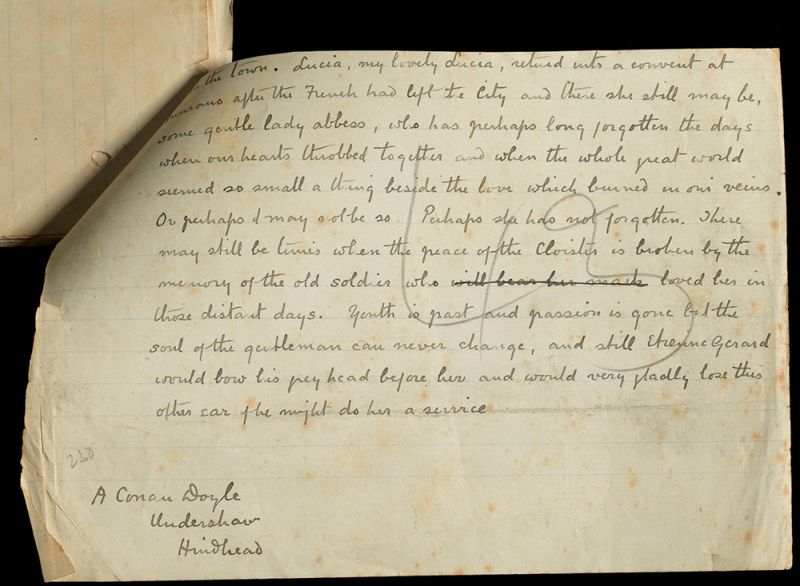 the town. Lucia, my lovely Lucia, retired into a convent at
after the French had left the City and there she still may be,
some gentle lady abbess, who has perhaps long forgotten the days
when our hearts throbbed together and when the whole great world
seemed so small a thing beside the love which burned in our veins.
Or perhaps it may not be so. Perhaps she has not forgotten. There
may still be times when the peace of the Cloister is broken by the
memory of the old soldier who will bear her mark loved her in
those distant days. Youth is past and passion is gone but the
soul of the gentleman can never change, and still Etienne Gerard
would bow his grey head before her and would very gladly lose this
other ear if he might do her a service
230
A Conan Doyle
Undershaw
Hindhead